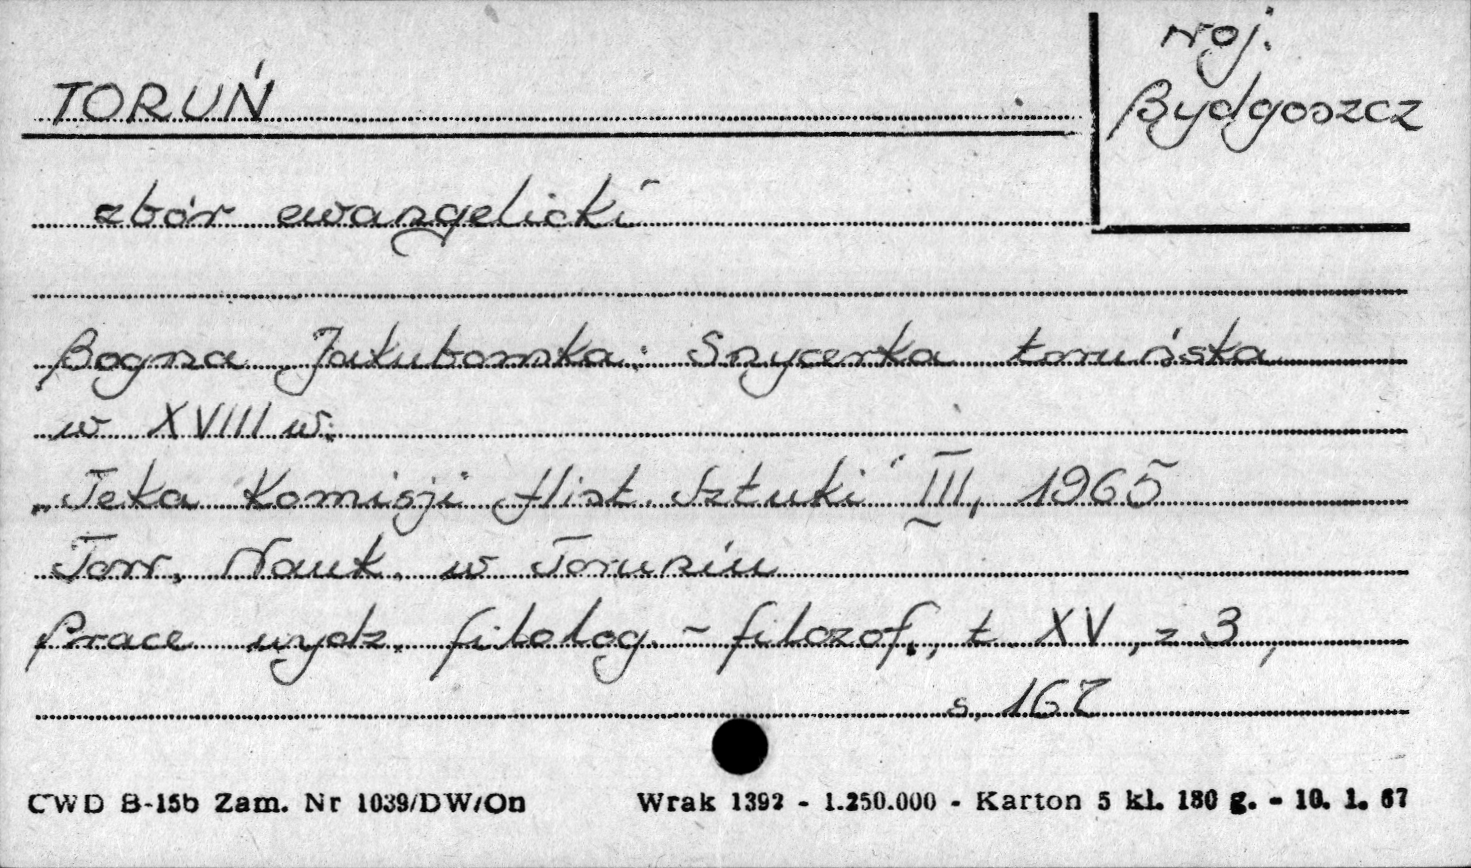 TORUŃ
woj.
Bydgoszcz
zbór ewangelicki
Bogna Jakubowska: Snycerka toruńska
w XVIII w.
„Teka Komisji Hist. Sztuki" III, 1965
Tow. Nauk. w Toruniu
Prace wydz. filolog. - filozof., t XV, z 3,
s. 167
CWD B-15b Zam. Nr 1039/DW/On Wrak 1392 - 1.250.000 - Karton 5 kl. 180 g. - 10. 1. 67